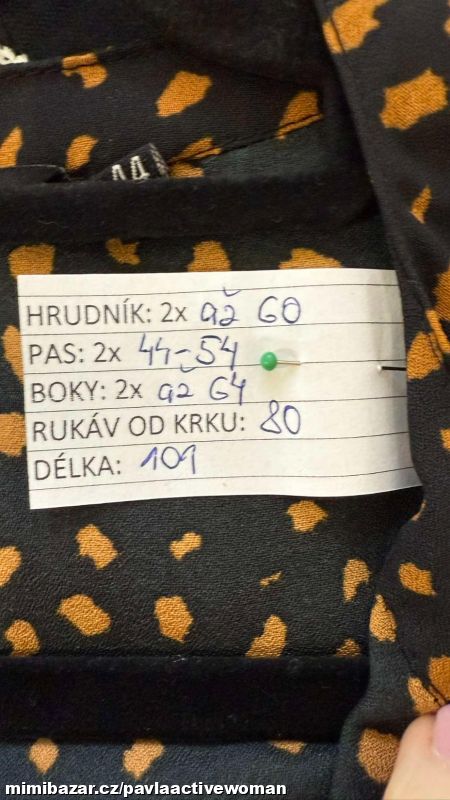 44
HRUDNÍK: 2x až 60
PAS: 2x 44-54
BOKY: 2x až 64
RUKÁV OD KRKU: 80
DÉLKA: 101
mimibazar.cz/pavlaactivewoman